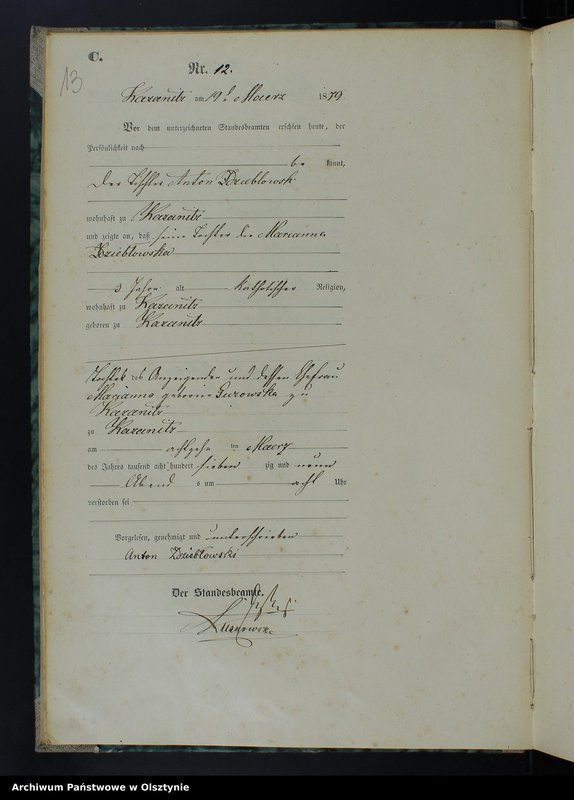 C.
13
Nr. 12.
Kazanitz am 19t Maerz 1879
Vor dem unterzeichneten Standesbeamten erschien heute, der
Persönlichkeit nach
be kannt,
der Tischler Anton
wohnhaft zu Kazanitz
und zeigte an, daß seine Tochter die Marianna
3 Jahre alt katholischer Religion,
wohnhaft zu Kazanitz
geboren zu Kazanitz
Tochter des Anzeigenden und dessen Ehefrau
Marianna geborne Gurowska zu
Kazanitz
zu Kazanitz
am achtzehn ten Maerz
des Jahres tausend acht hundert sieben zig und neun
Abend s um acht Uhr
verstorben sei
Vorgelesen, genehmigt und unterschrieben
Anton
Der Standesbeamte.
Archiwum Państwowe w Olsztynie